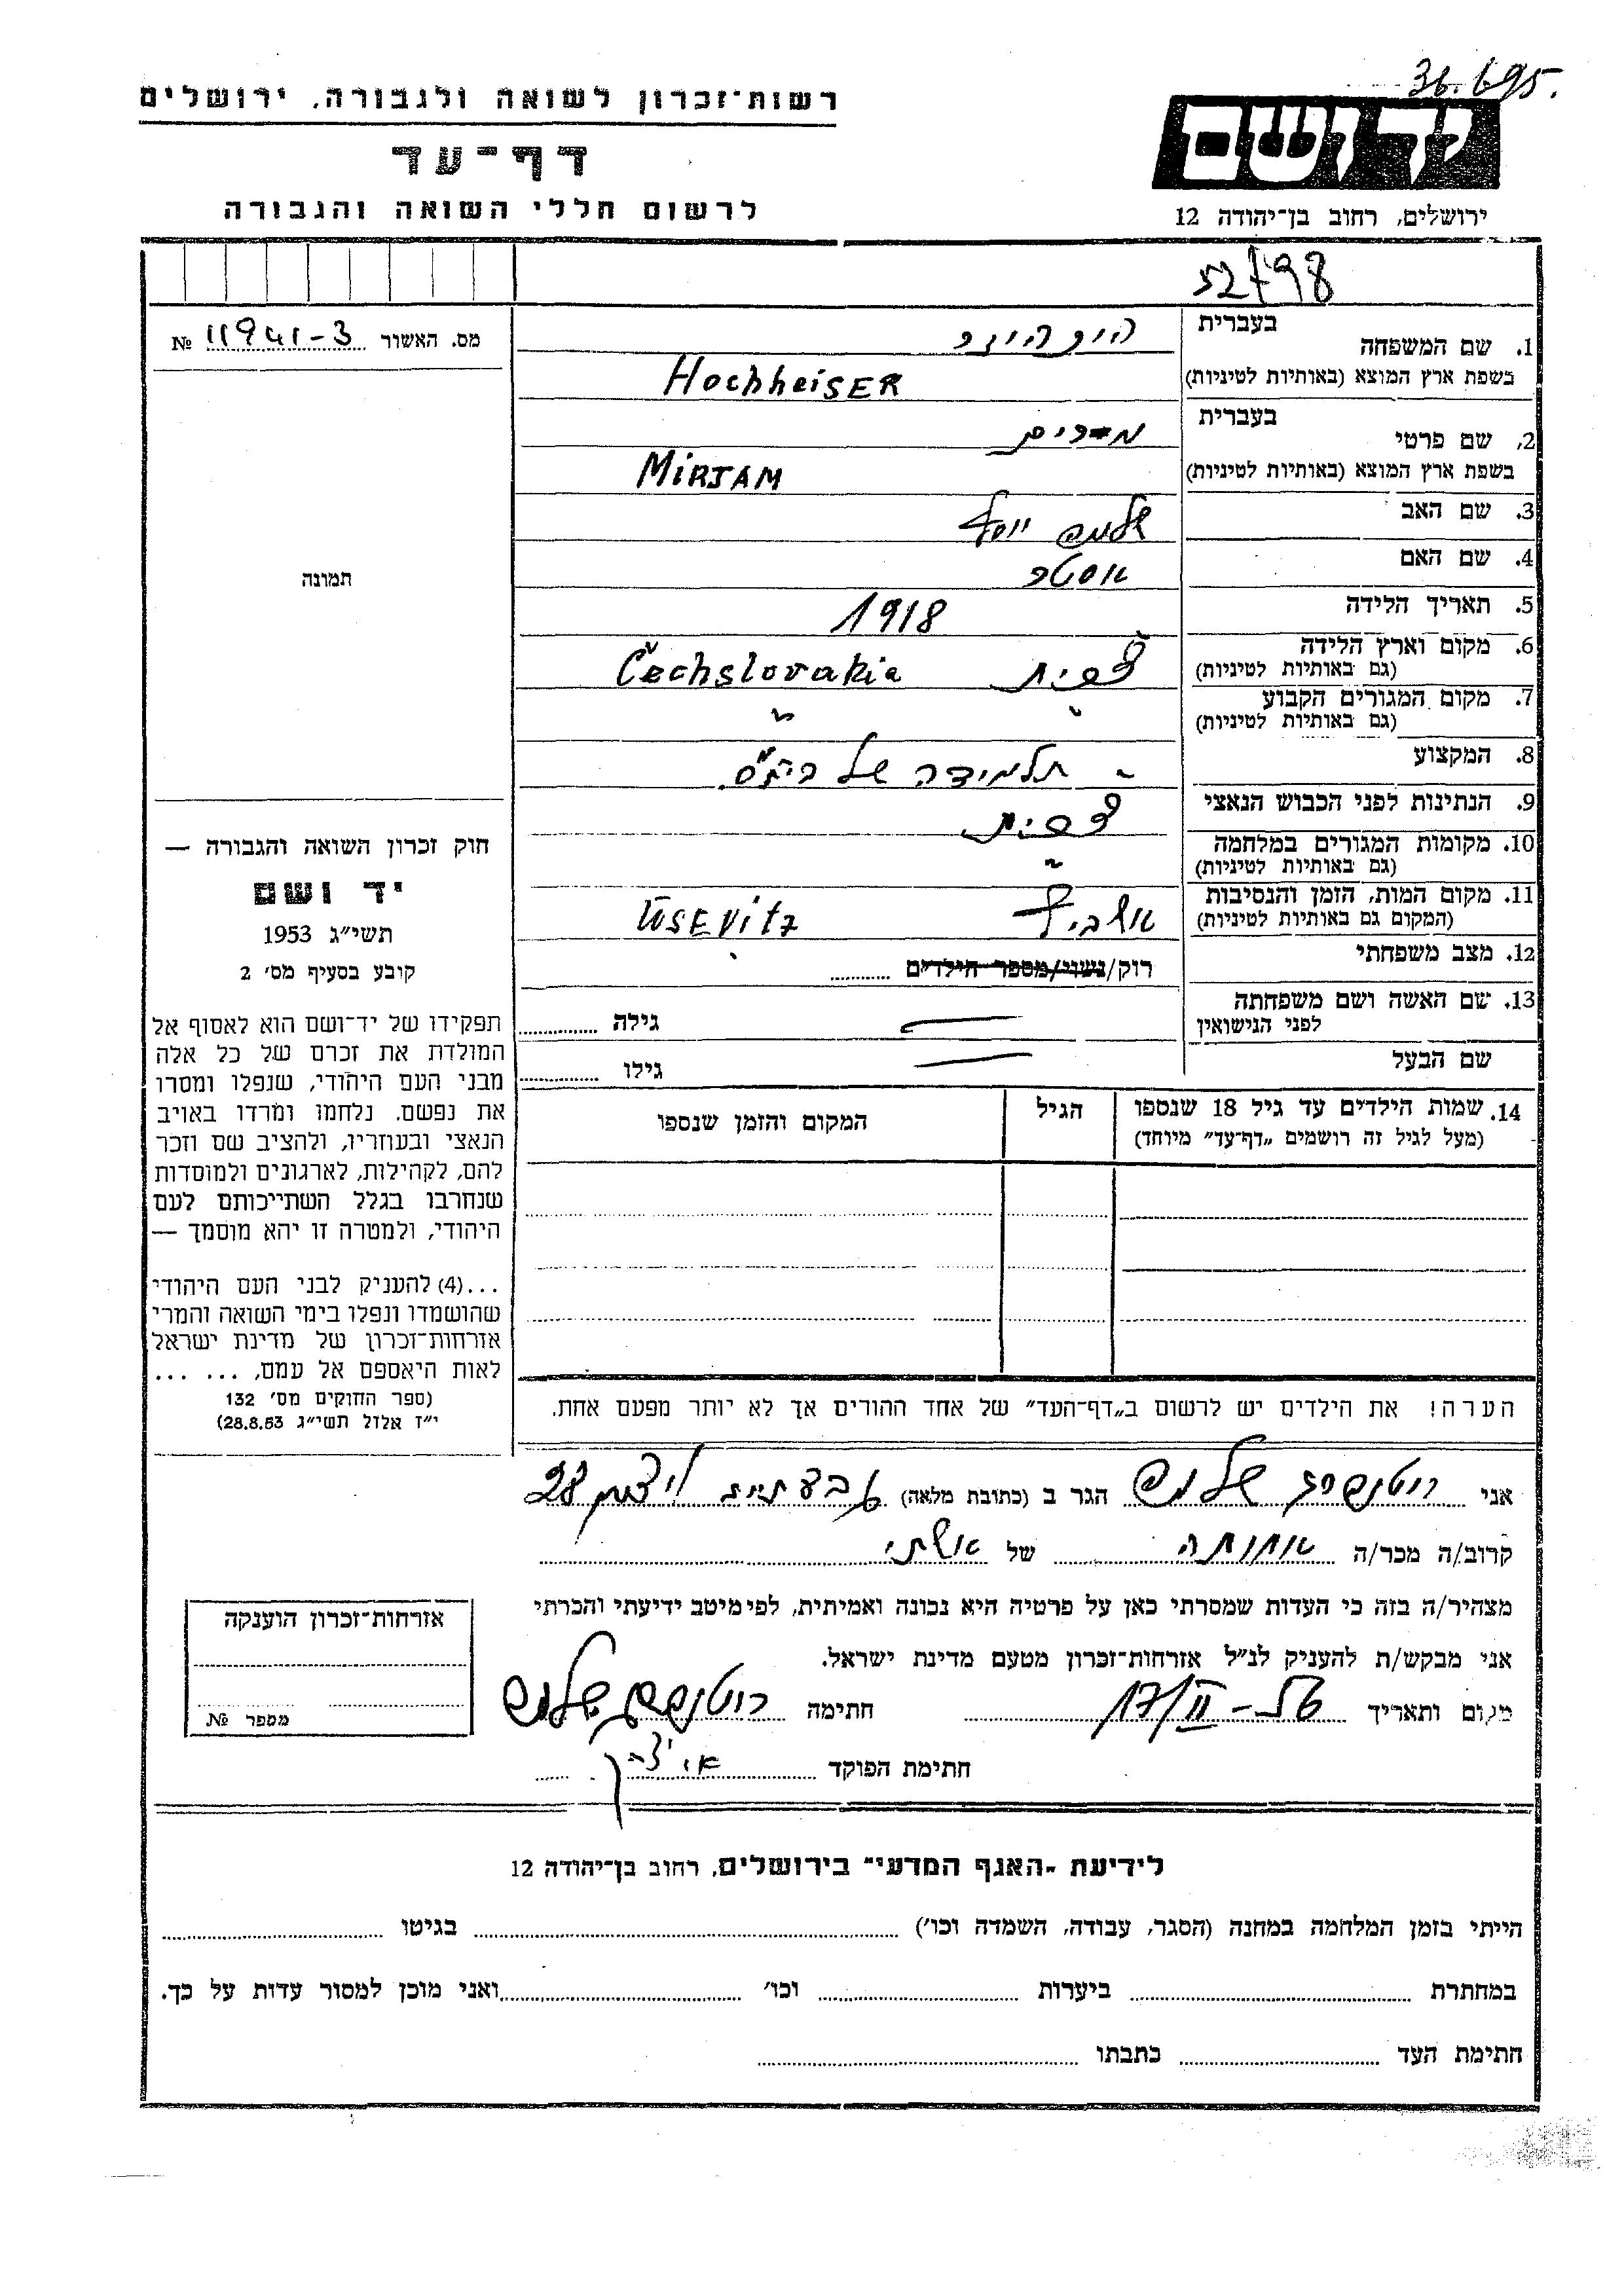 36.695.
רשות־זכרון לשואה ולגבורה, ירושלים
יד ושם
דף־עד
לרשום חללי השואה והגבורה
ירושלים, רחוב בן־יהודה 12
52798
מס. האשור 11941-3 №
1. שם המשפחה בעברית
בשפת ארץ המוצא (באותיות לטיניות) Hochheiser
2. שם פרטי בעברית מרים
בשפת ארץ המוצא (באותיות לטיניות) MiRJAM
3. שם האב שלמה יוסף
4. שם האם אסטר
5. תאריך הלידה 1918
6. מקום וארץ הלידה
(גם באותיות לטיניות) צ'כית Čechslovakia
7. מקום המגורים הקבוע
(גם באותיות לטיניות) " "
8. המקצוע תלמידה של בי"ס
9. הנתינות לפני הכבוש הנאצי צ'כית
10. מקומות המגורים במלחמה
(גם באותיות לטיניות) "
11. מקום המות, הזמן והנסיבות
(המקום גם באותיות לטיניות) אושביץ USEVitz
12. מצב משפחתי רוק/נשוי/מספר הילדים
13. שם האשה ושם משפחתה
לפני הנישואין — גילה
שם הבעל — גילו
14. שמות הילדים עד גיל 18 שנספו
(מעל לגיל זה רושמים „דף־עד" מיוחד)
הגיל
המקום והזמן שנספו
תמונה
חוק זכרון השואה והגבורה —
יד ושם
תשי"ג 1953
קובע בסעיף מס׳ 2
תפקידו של יד־ושם הוא לאסוף אל
המולדת את זכרם של כל אלה
מבני העם היהודי, שנפלו ומסרו
את נפשם, נלחמו ומרדו באויב
הנאצי ובעוזריו, ולהציב שם וזכר
להם, לקהילות, לארגונים ולמוסדות
שנחרבו בגלל השתייכותם לעם
היהודי, ולמטרה זו יהא מוסמך —
...(4) להעניק לבני העם היהודי
שהושמדו ונפלו בימי השואה והמרי
אזרחות־זכרון של מדינת ישראל
לאות היאספם אל עמם, ... ...
(ספר החוקים מס׳ 132
י"ז אלול תשי"ג 28.8.53)
הערה! את הילדים יש לרשום ב„דף־העד" של אחד ההורים אך לא יותר מפעם אחת.
אני רוטנברג שלמה הגר ב (כתובת מלאה) גבעתיים ויצמן 28
קרוב/ה מכר/ה אחותה של אשתי
מצהיר/ה בזה כי העדות שמסרתי כאן על פרטיה היא נכונה ואמיתית, לפי מיטב ידיעתי והכרתי
אני מבקש/ת להעניק לנ"ל אזרחות־זכרון מטעם מדינת ישראל.
מקום ותאריך 17/II - 56 חתימה רוטנברג שלמה
חתימת הפוקד
אזרחות־זכרון הוענקה
מספר №
לידיעת „האגף המדעי" בירושלים, רחוב בן־יהודה 12
הייתי בזמן המלחמה במחנה (הסגר, עבודה, השמדה וכו׳) בגיטו
במחתרת ביערות וכו׳ ואני מוכן למסור עדות על כך.
חתימת העד כתבתו